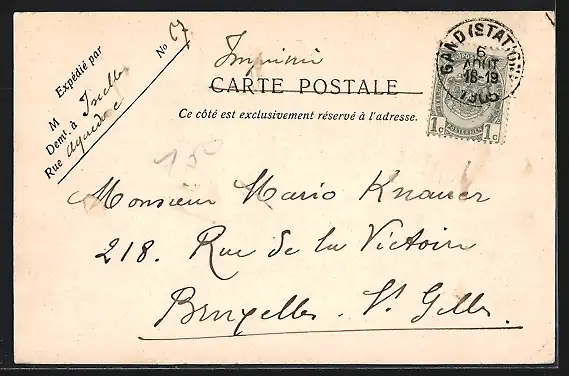 Expédié par
M
Demt. à Ixelles
Rue
No 67
Imprimé
CARTE POSTALE
Ce côté est exclusivement réservé à l'adresse.
GAND (STATION)
6
AOUT
18-19
1905
1c 1c
150
Monsieur Mario Knauer
218. Rue de la Victoire
Bruxelles. St Gilles.